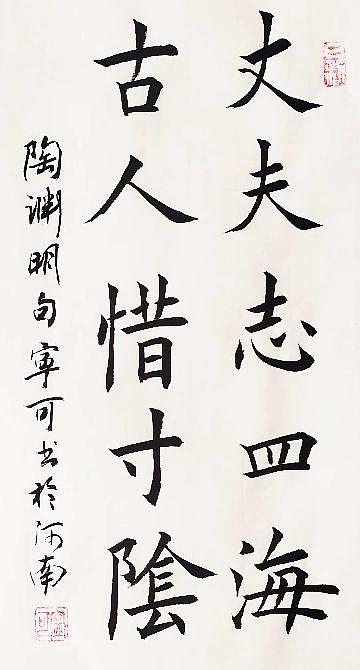 丈夫志四海
古人惜寸陰
陶渊明句寗可书於河南